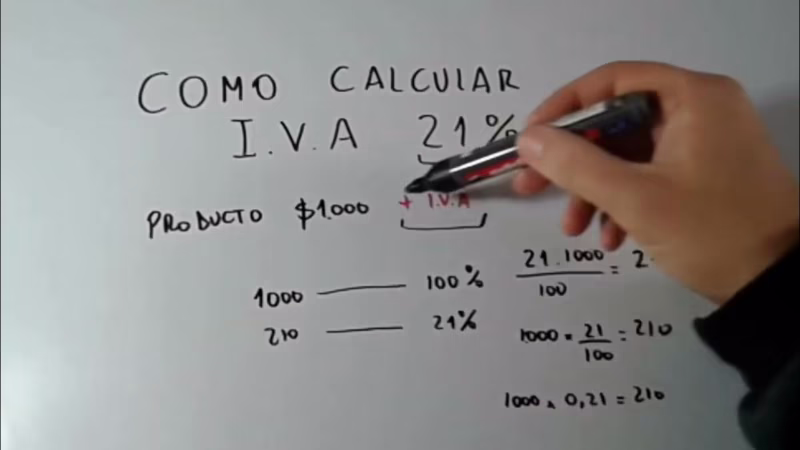 COMO CALCULAR
I.V.A 21%
PRODUCTO $1.000 + I.V.A
1000 — 100%
210 — 21%
21.1000
100
= 2
1000 . 21/100 = 210
1000 x 0,21 = 210